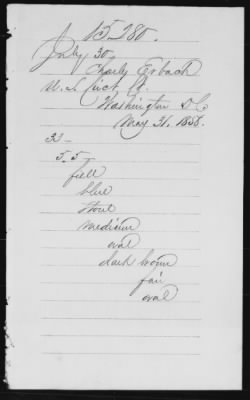 15280.
July 30,
Charles Erbach
U. S. Circt Ct.
Washington D C
May 31, 1858.
33 —
5. 5 —
full
blue
stout
medium
oval
dark brown
fair
oval